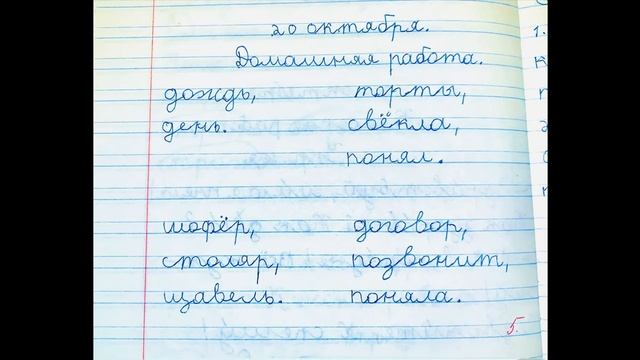 20 октября.
Домашняя работа.
дождь, торты,
день. свёкла,
понял.
шофёр, договор,
столяр, позвонит,
щавель. поняла.
5.
1.